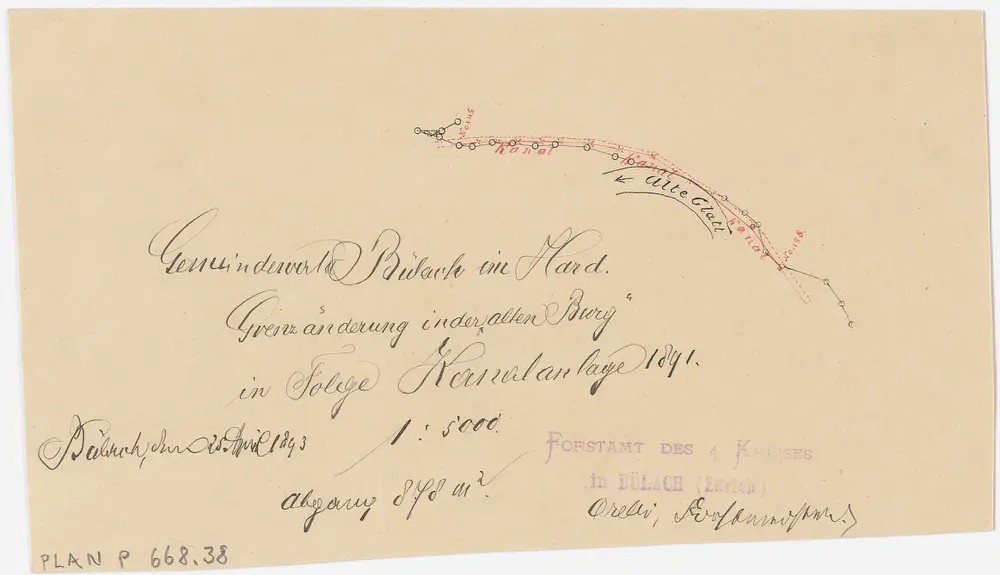 No 145
Kanal
Kanal
Alte Glatt
Kanal
No 158.
Gemeindewald Bülach im Hard.
Grenzänderung in der „alten Burg“
in Folge Kanalanlage 1891.
1 : 5000.
Bülach, den 25. April 1893
Abgang 878 m².
FORSTAMT DES 4 KREISES
in BÜLACH (Zürich)
Orelli, Forstmeister.
PLAN P 668.38